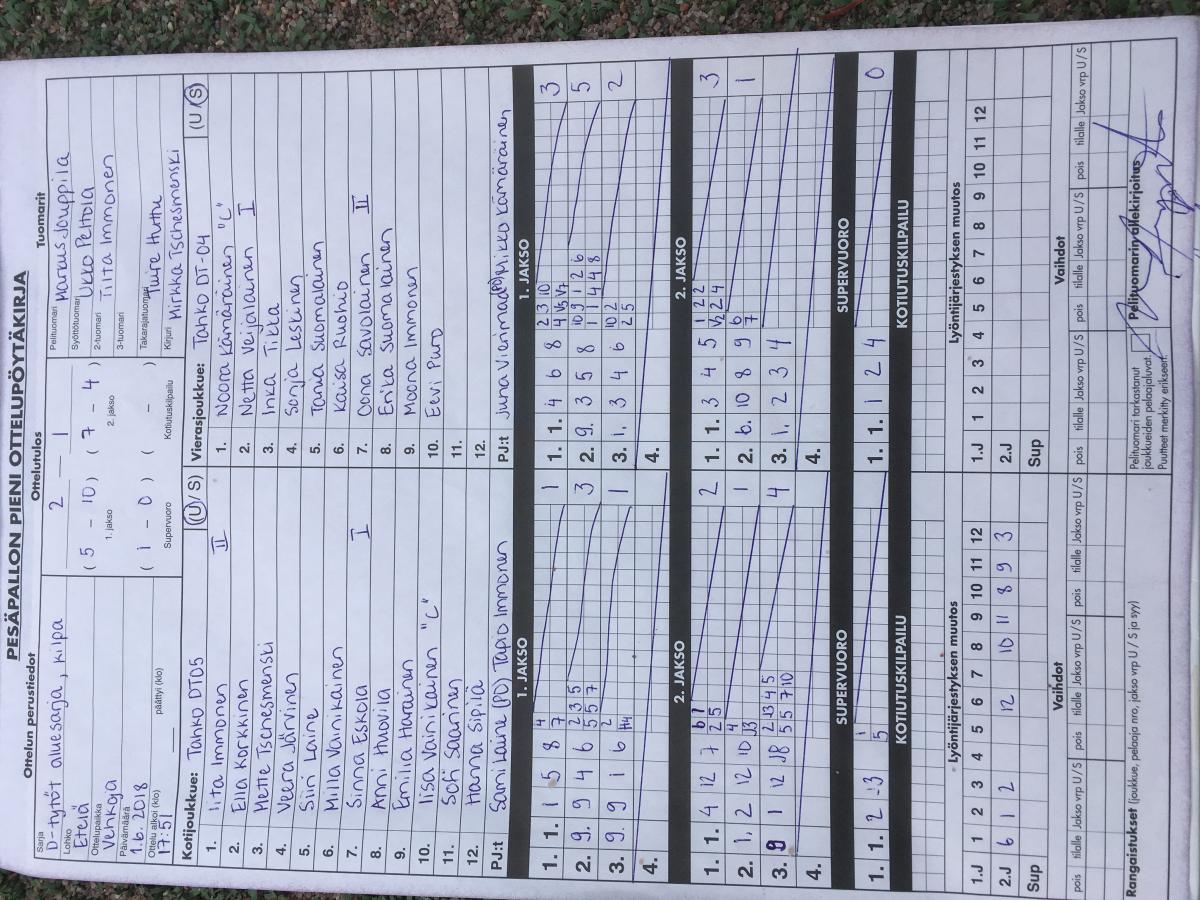 PESÄPALLON PIENI OTTELUPÖYTÄKIRJA
Ottelun perustiedot
Sarja
D-tytöt aluesarja, kilpa
Lohko
Etelä
Ottelupaikka
Venkoja
Päivämäärä
1.6. 2018
Ottelu alkoi (klo) päättyi (klo)
17:51
Ottelutulos
2 – 1
( 5 – 10 ) ( 7 – 4 )
1. jakso 2. jakso
( 1 – 0 ) ( – )
Supervuoro Kotiutuskilpailu
Tuomarit
Pelituomari Marcus Jouppila
Syöttötuomari Ukko Peltola
2-tuomari Tiita Immonen
3-tuomari
Takarajatuomari Tuire Huttu
Kirjuri Mirkka Tschesmenski
Kotijoukkue: Tahko DT05 (U / S)
1. Iita Immonen II
2. Ella Korkkinen
3. Hette Tschesmenski
4. Veera Järvinen
5. Siiri Laine
6. Milla Vainikainen
7. Sinna Eskola I
8. Anni Huovila
9. Emilia Harainen
10. Iisa Vainikainen "C"
11. Sohi Saarinen
12. Hanna Sipilä
PJ:t Sami Laine (PO) Tapio Immonen
Vierasjoukkue: Tahko DT-04 (U / S)
1. Noora Kämäräinen "C"
2. Netta Veijalainen I
3. Inka Tikla
4. Sonja Leskinen
5. Tania Suomalainen
6. Kaisa Rushio
7. Oona Savolainen II
8. Erika Suomalainen
9. Moona Immonen
10. Eevi Puro
11.
12.
PJ:t Juha Vienmaa (PO) Mikko Kämäräinen
1. JAKSO
1. 1. 1 5 8 4 1
7
2. 9. 9 4 6 2 3 5 3
5 5 7
3. 9. 9 1 6 2 1
H4
4.
1. JAKSO
1. 1. 4 6 8 2 3 10 3
4 V3 V7
2. 9. 3 5 8 10 9 1 2 6 5
1 1 4 4 8
3. 1. 3 4 6 10 2 2
2 5
4.
2. JAKSO
1. 1. 4 12 7 6 1 2
2 5
2. 1. 2 12 10 4 1
J3
3. 9 1 12 J8 2 J3 4 5 4
5 5 7 10
4.
2. JAKSO
1. 1. 3 4 5 1 2 2 3
V2 2 4
2. 6. 10 8 9 6 1
7
3. 1. 2 3 4
4.
SUPERVUORO
1. 1. 2 -3 1
5
SUPERVUORO
1. 1. 1 2 4 0
KOTIUTUSKILPAILU
KOTIUTUSKILPAILU
Lyöntijärjestyksen muutos
1.J 1 2 3 4 5 6 7 8 9 10 11 12
2.J 6 1 2 12 10 11 8 9 3
Sup
Lyöntijärjestyksen muutos
1.J 1 2 3 4 5 6 7 8 9 10 11 12
2.J
Sup
Vaihdot
pois tilalle Jakso vrp U / S pois tilalle Jakso vrp U / S pois tilalle Jakso vrp U / S
Vaihdot
pois tilalle Jakso vrp U / S pois tilalle Jakso vrp U / S pois tilalle Jakso vrp U / S
Rangaistukset (joukkue, pelaaja nro, jakso vrp U / S ja syy)
Pelituomari tarkastanut
joukkueiden pelaajaluvat.
Puutteet merkitty erikseen.
Pelituomarin allekirjoitus